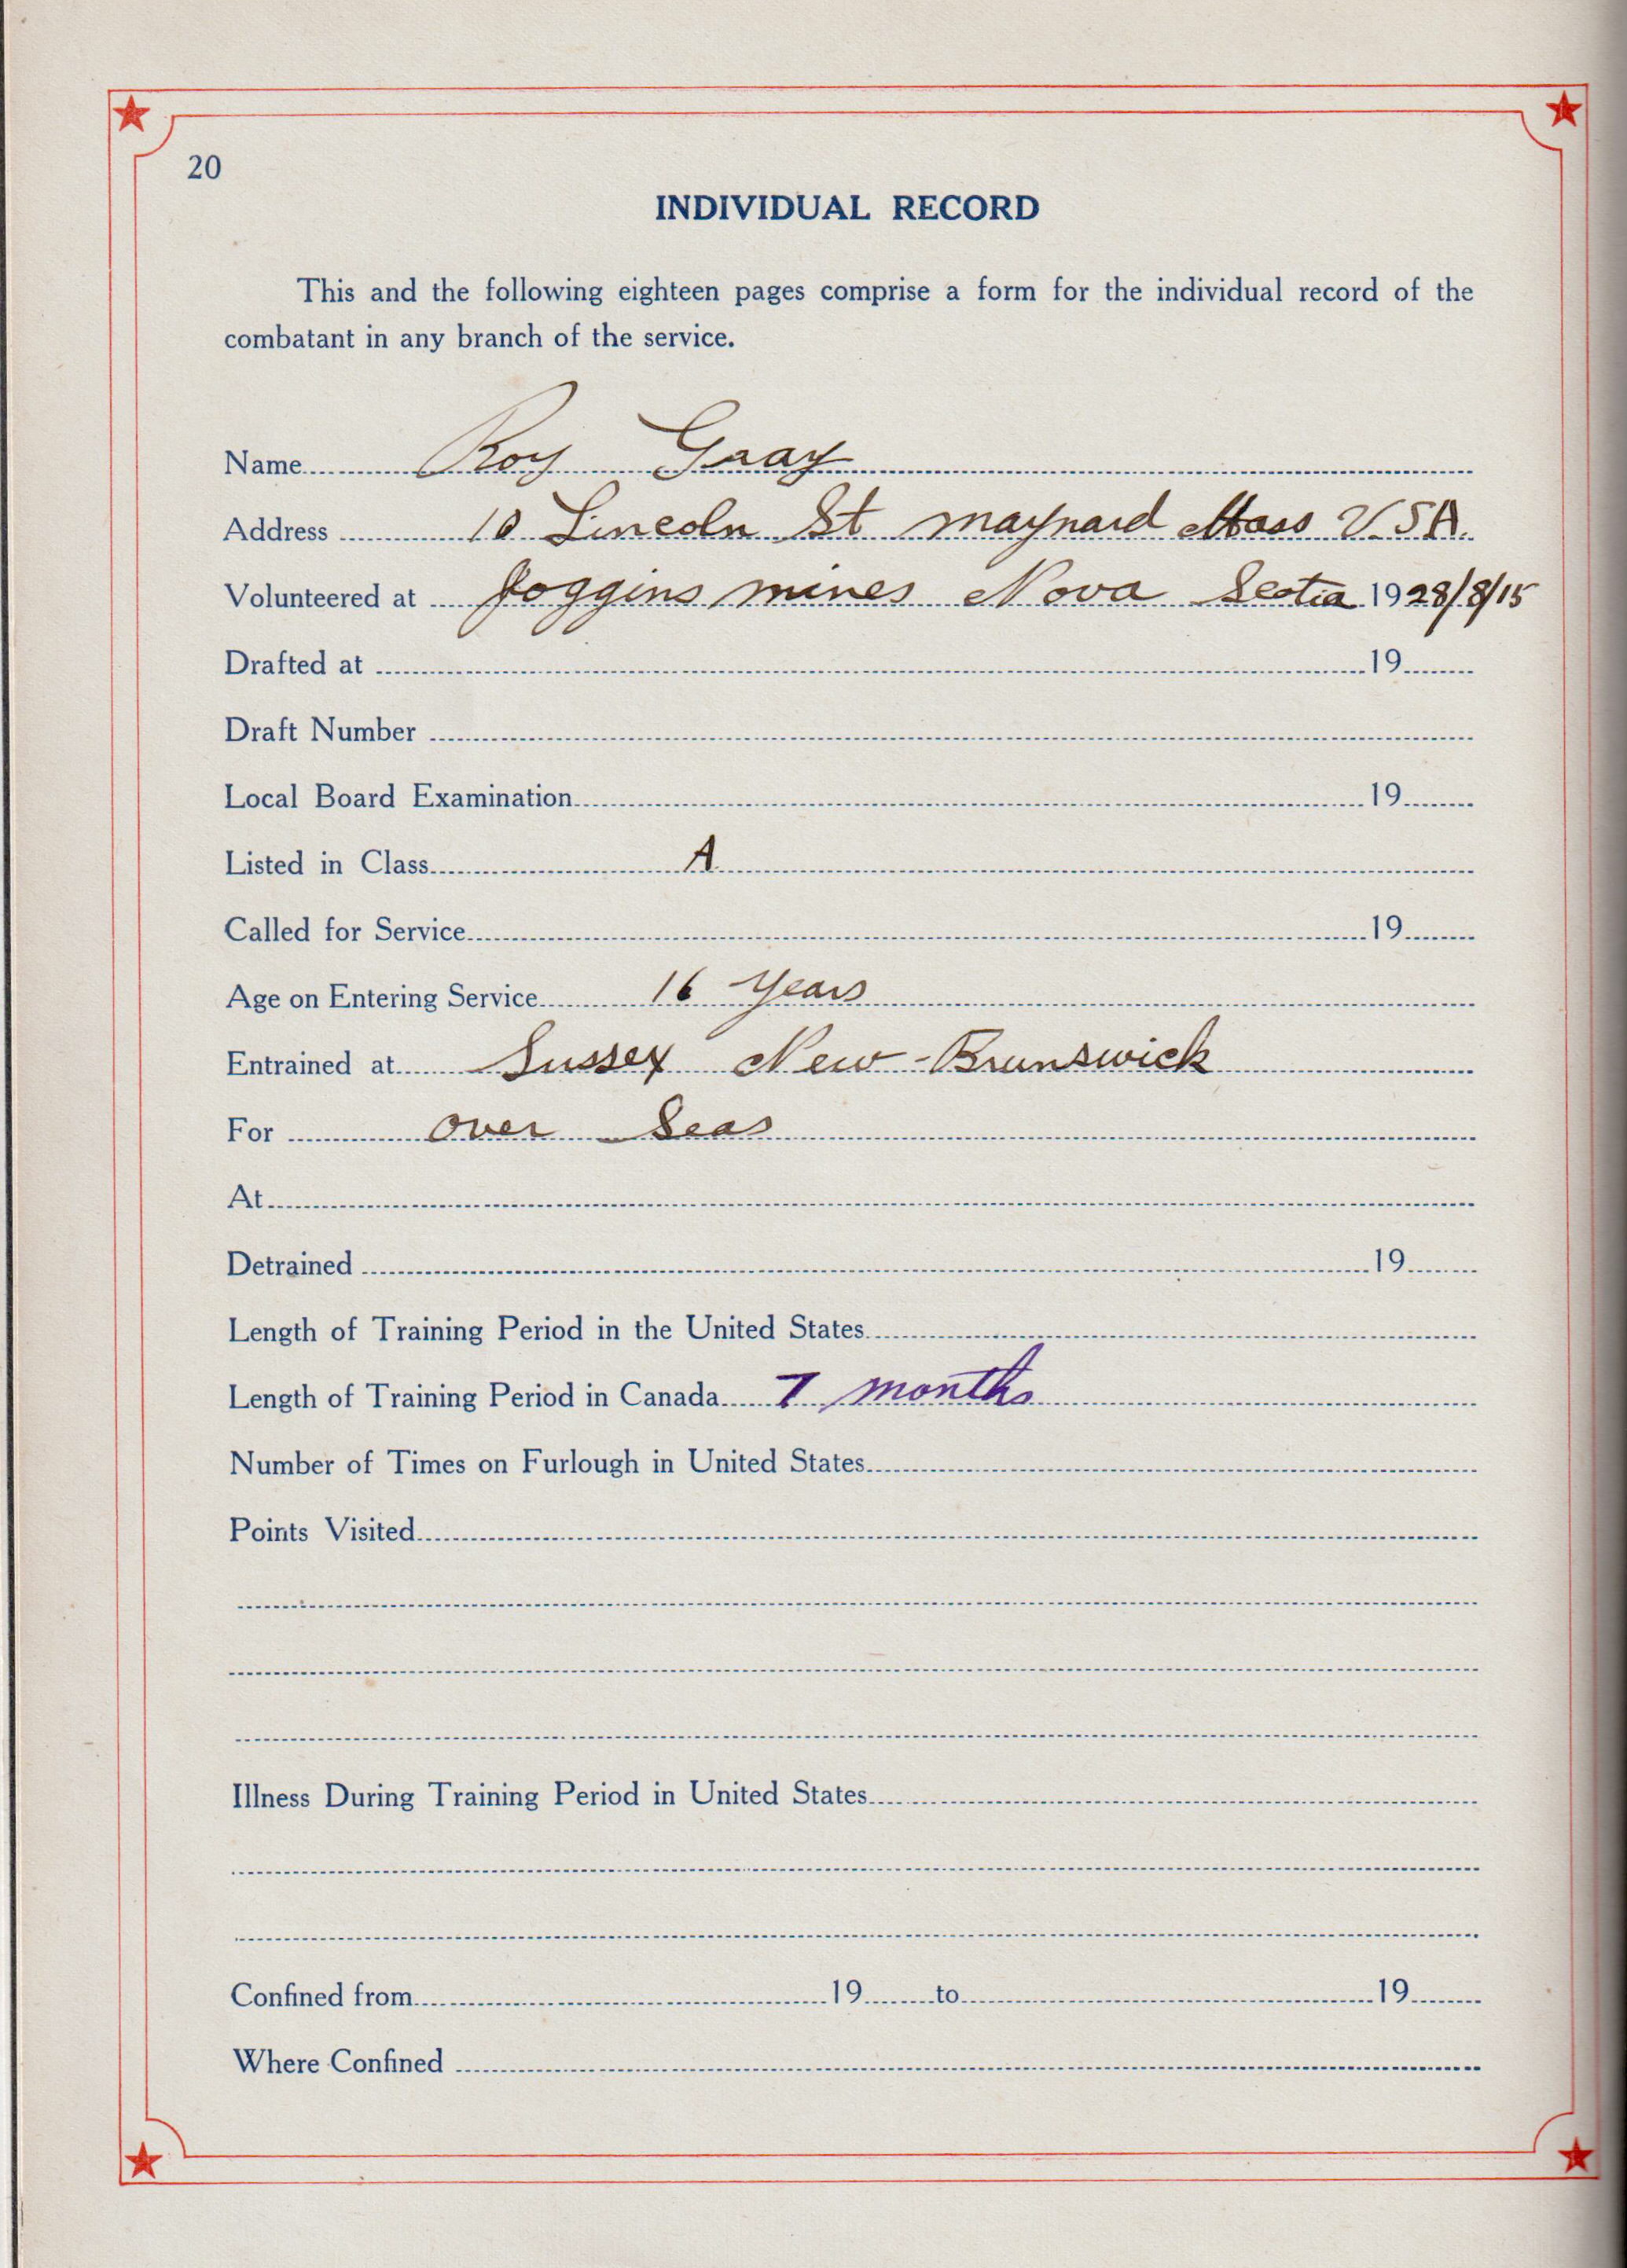 20
INDIVIDUAL RECORD
This and the following eighteen pages comprise a form for the individual record of the
combatant in any branch of the service.
Name Roy Gray
Address 10 Lincoln St Maynard Mass U.S.A.
Volunteered at Joggins mines Nova Scotia 1928/8/15
Drafted at 19
Draft Number
Local Board Examination 19
Listed in Class A
Called for Service 19
Age on Entering Service 16 Years
Entrained at Sussex New-Brunswick
For Over Seas
At
Detrained 19
Length of Training Period in the United States
Length of Training Period in Canada 7 months
Number of Times on Furlough in United States
Points Visited
Illness During Training Period in United States
Confined from 19 to 19
Where Confined